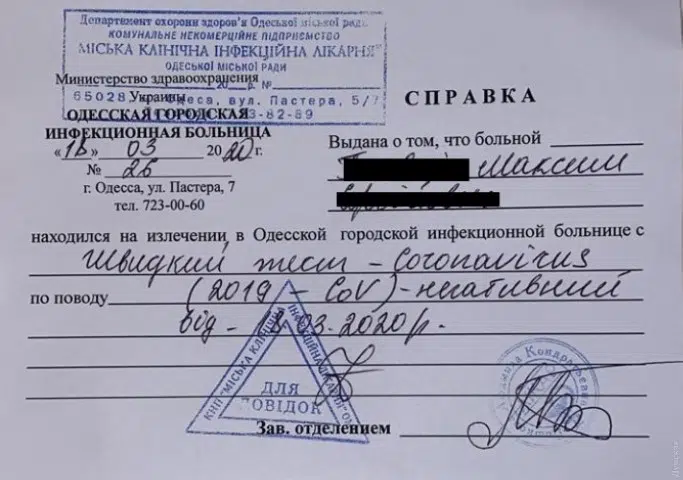 Департамент охорони здоров'я Одеської міської ради
КОМУНАЛЬНЕ НЕКОМЕРЦІЙНЕ ПІДПРИЄМСТВО
"МІСЬКА КЛІНІЧНА ІНФЕКЦІЙНА ЛІКАРНЯ"
ОДЕСЬКОЇ МІСЬКОЇ РАДИ
20 р. №
65028, Одеса, вул. Пастера, 5/7
3-82-89
Министерство здравоохранения
Украины
ОДЕССКАЯ ГОРОДСКАЯ
ИНФЕКЦИОННАЯ БОЛЬНИЦА
«18» 03 2020 г.
№ 26
г. Одесса, ул. Пастера, 7
тел. 723-00-60
СПРАВКА
Выдана о том, что больной
Максим
находился на излечении, в Одесской городской инфекционной больнице с
Швидкий тест - Coronavirus
по поводу (2019 - CoV) - негативний
від - 18.03.2020 р.
КНП "МІСЬКА КЛІНІЧНА ІНФЕКЦІЙНА ЛІКАРНЯ" ОМР
ДЛЯ
ДОВІДОК
Зав. отделением
Кондратьевна